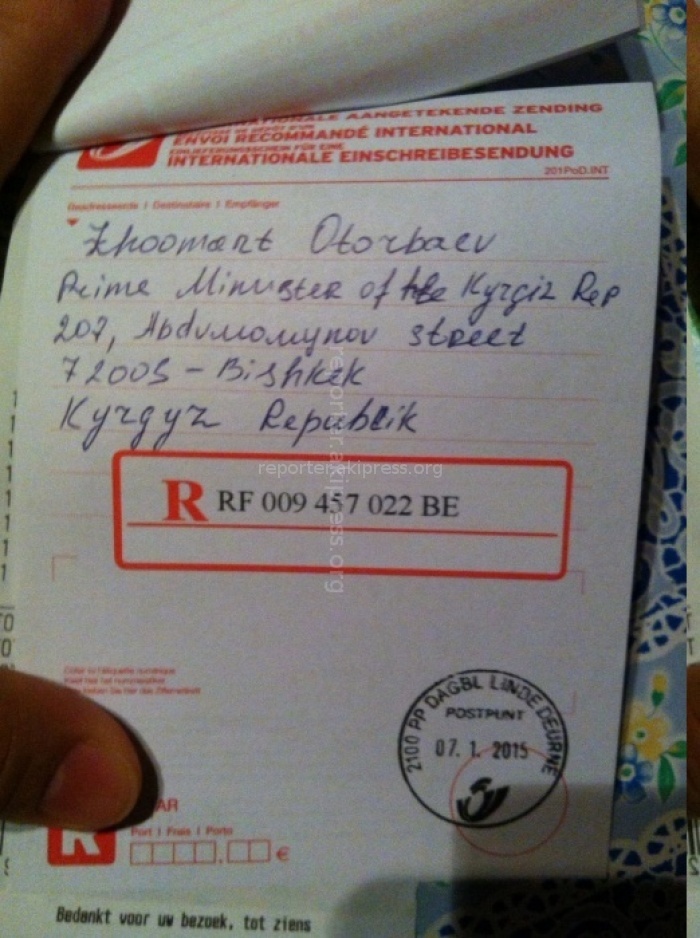 NATIONALE AANGETEKENDE ZENDING
ENVOI RECOMMANDÉ INTERNATIONAL
EINLIEFERUNGSSCHEIN FÜR EINE
INTERNATIONALE EINSCHREIBESENDUNG
201PoD.INT
Geadresseerde | Destinataire | Empfänger
Zhoomart Otorbaev
Prime Minister of the Kyrgiz Rep
207, Abdumomynov street
72005 - Bishkek
Kyrgyz Republik
reporter.akipress.org
reporter.akipress.org
R RF 009 457 022 BE
Coller ici l'étiquette numérique
2100 PP DAGBL LINDE DEURNE
POSTPUNT
07. 1. 2015
AR
R
Port | Frais | Porto
, €
Bedankt voor uw bezoek, tot ziens